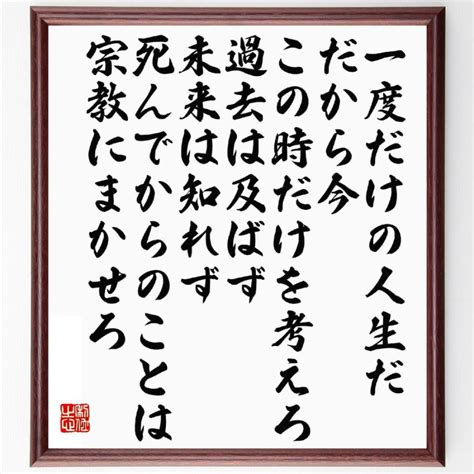 一度だけの人生だ
だから今
この時だけを考えろ
過去は及ばず
未来は知れず
死んでからのことは
宗教にまかせろ